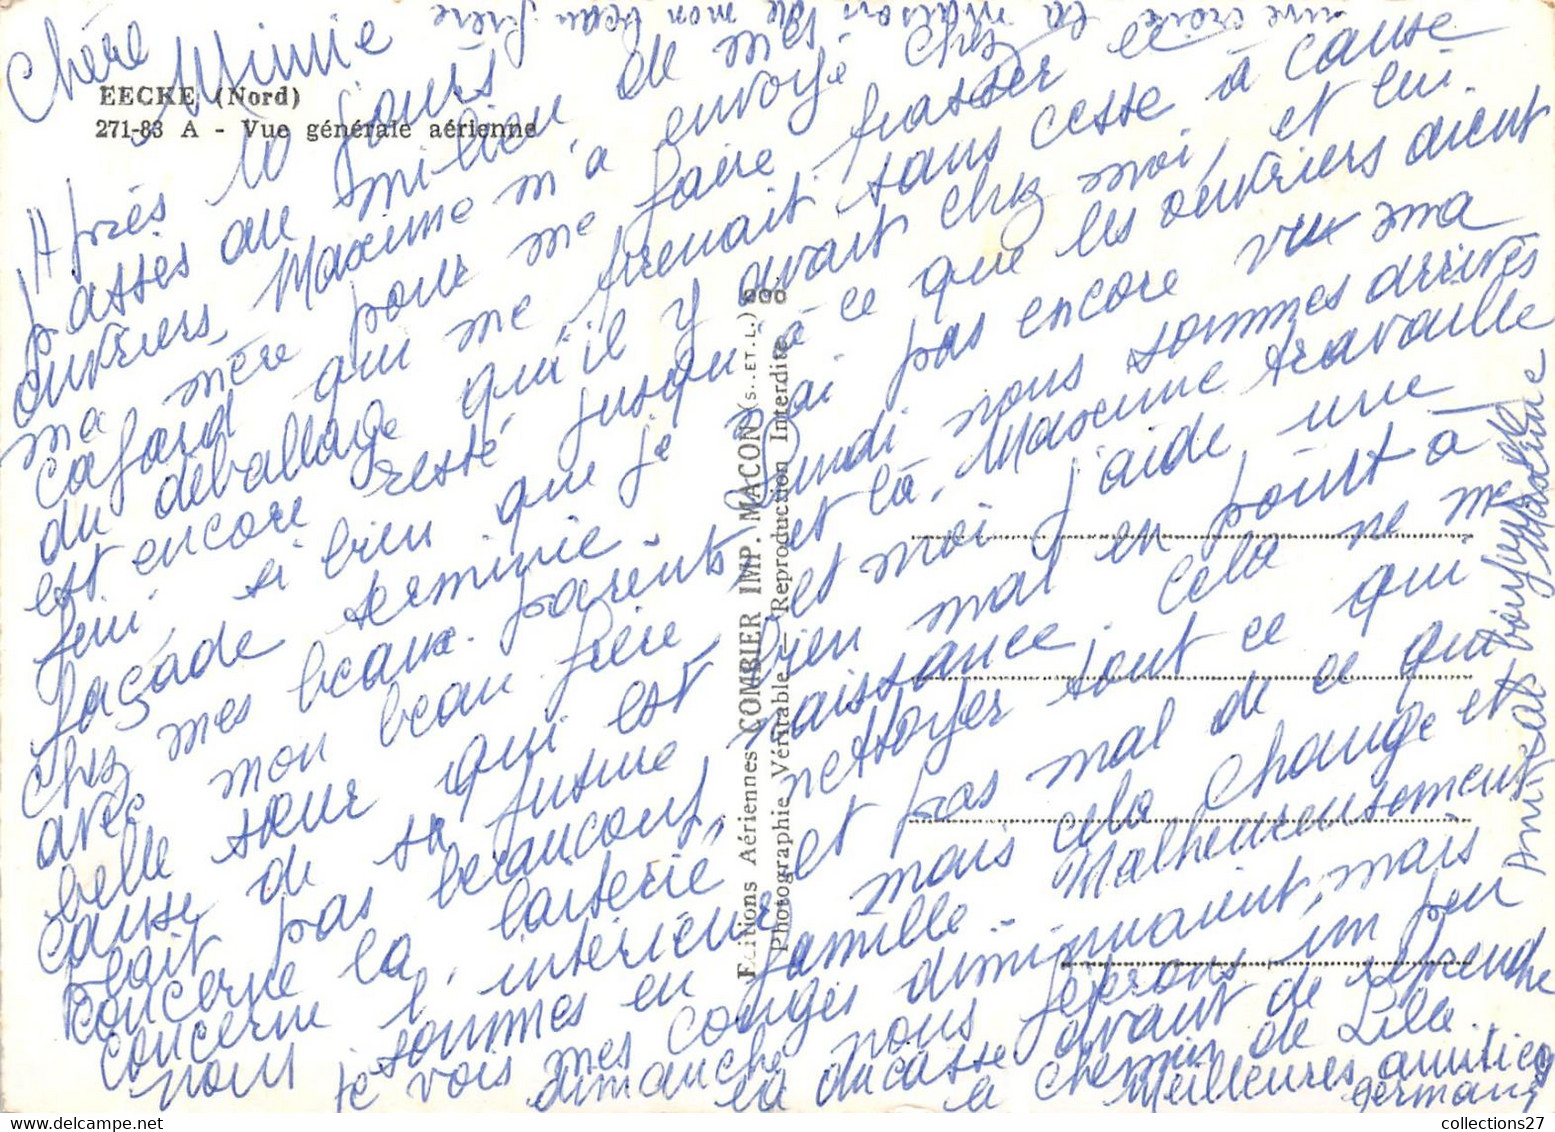 Chère Minnie
EECKE (Nord)
271-83 A - Vue générale aérienne
Après 10 jours
passés au milieu de
ouvriers, Maxime m'a envoyé chez
ma mère pour me faire passer le
cafard qui me prenait sans cesse à cause
du déballage qu'il y avait chez moi, et lui
est encore resté jusqu'à ce que les ouvriers aient
fini, si bien que je n'ai pas encore vu ma
façade terminée. Lundi nous sommes arrivés
chez mes beaux-parents et là, Maxime travaille
avec mon beau père, et moi j'aide une
belle sœur qui est bien mal en point à
cause de sa future naissance. Cela ne me
plait pas beaucoup, nettoyer tout ce qui
concerne la laiterie, et pas mal de ce qui
concerne l'intérieur mais cela change et
nous sommes en famille. Malheureusement
je vois mes congés diminuaient, mais
dimanche nous fêterons un peu
la ducasse avant de reprendre
le chemin de Lille.
Meilleures amitiés
Germaine
la maison de mon beau frère
Editions Aériennes COMBIER IMP. MACON (S.-ET-L.)
Photographie Véritable - Reproduction Interdite
collections27